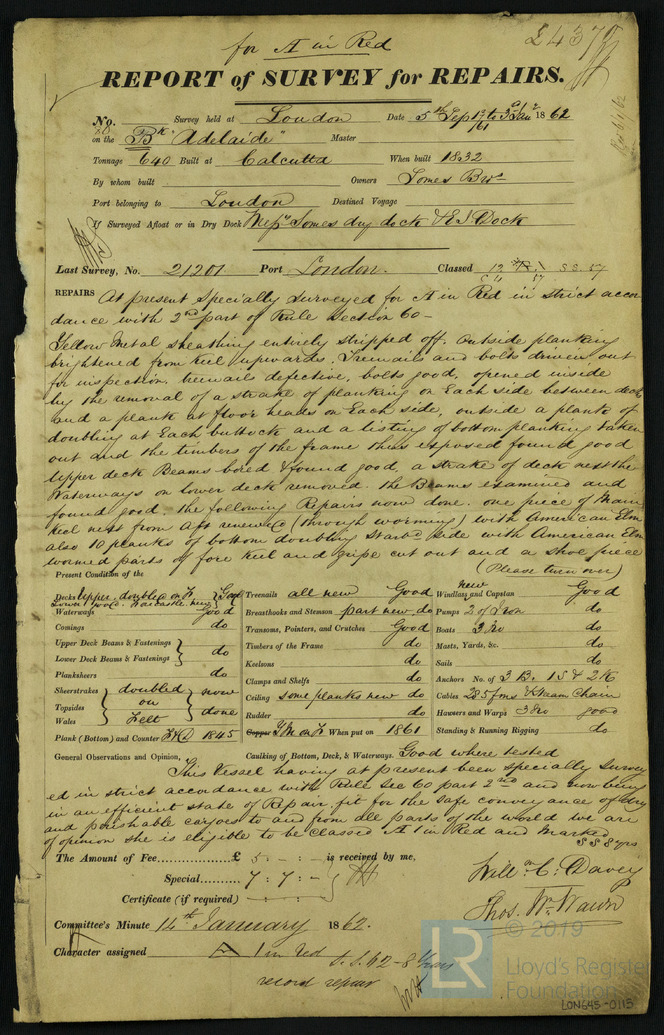 for A in Red
£437
REPORT of SURVEY for REPAIRS.
No. Survey held at London Date 5th Sepr /61 to 3d Jany 1862
on the Bk "Adelaide" Master
Tonnage 640 Built at Calcutta When built 1832
By whom built Owners Somes Brs
Port belonging to London Destined Voyage
If Surveyed Afloat or in Dry Dock Messrs Somes dry dock & E I Dock
Last Survey, No. 21201 Port London. Classed 12 S.S. 57
REPAIRS At present specially surveyed for A in Red in strict accor
dance with 2nd part of Rule Section 60 -
Yellow Metal sheathing entirely stripped off. Outside planking
brightened from keel upwards. Treenails and bolts driven out
for inspection, treenails defective, bolts good, opened inside
by the removal of a strake of planking on Each side between decks
and a plank at floor heads on Each side, outside a plank of
doubling at Each buttock and a listing of bottom planking taken
out and the timbers of the frame thus exposed found good
Upper deck Beams bored & found good, a strake of deck next the
Waterways on lower deck removed. the Beams examined and
found good. the following Repairs now done. one piece of Main
Keel next from aft renewed (through worming) with American Elm
also 10 planks of bottom doubling Starbd side with American Elm
wormed parts of fore keel and gripe cut out and a shoe piece
(Please turn over)
Present Condition of the
Decks Upper, doubled on F. Good
Lower good. Forecastle new
Waterways Good
Comings do
Upper Deck Beams & Fastenings
Lower Deck Beams & Fastenings do
Planksheers do
Sheerstrakes doubled now
Topsides on
Wales Felt done
Plank (Bottom) and Counter 1845
Treenails all new Good
Breasthooks and Stemson part new do
Transoms, Pointers, and Crutches Good
Timbers of the Frame do
Keelsons do
Clamps and Shelfs do
Ceiling some planks new do
Rudder do
Copper YM on F When put on 1861
Caulking of Bottom, Deck, & Waterways. Good where tested
new
Windlass and Capstan Good
Pumps 2 of Iron do
Boats 3 No do
Masts, Yards, &c. do
Sails do
Anchors No. of 3 B. 1 S & 2 K do
Cables 285 fms Chain do
Hawsers and Warps 3 No good
Standing & Running Rigging do
General Observations and Opinion,
This Vessel having at present been specially survey
ed in strict accordance with Rule Sec 60 part 2nd and now being
in an efficient state of Repair. fit for the safe conveyance of dry
and perishable cargoes to and from all parts of the world we are
of opinion she is eligible to be classed A 1 in Red and marked
S S 8 yrs
The Amount of Fee......£ 5 : - : - is received by me,
Special......... 7 : 7 : -
Certificate (if required)
Willm C. Davey
Thos. W. Wawn
Committee's Minute 14th January 1862.
Character assigned A 1 in Red
S.S. 62 - 8 Years
record repair
© 2019
LR
Lloyd's Register
Foundation
LON645-0113